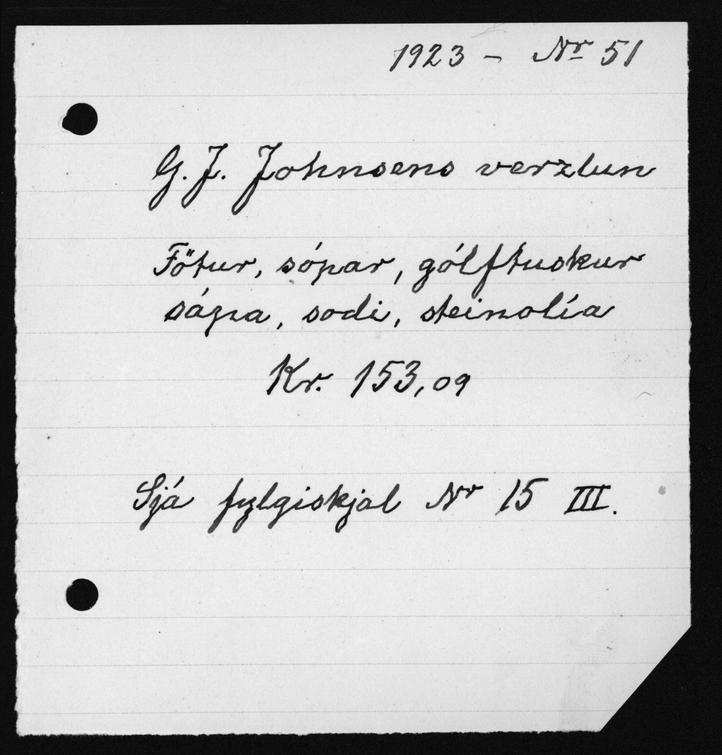 1923 - Nr 51
G. J. Johnsens verzlun
Fötur, sópar, gólftuskur
sápa, sodi, steinolía
Kr. 153,09
Sjá fylgiskjal Nr 15 III.